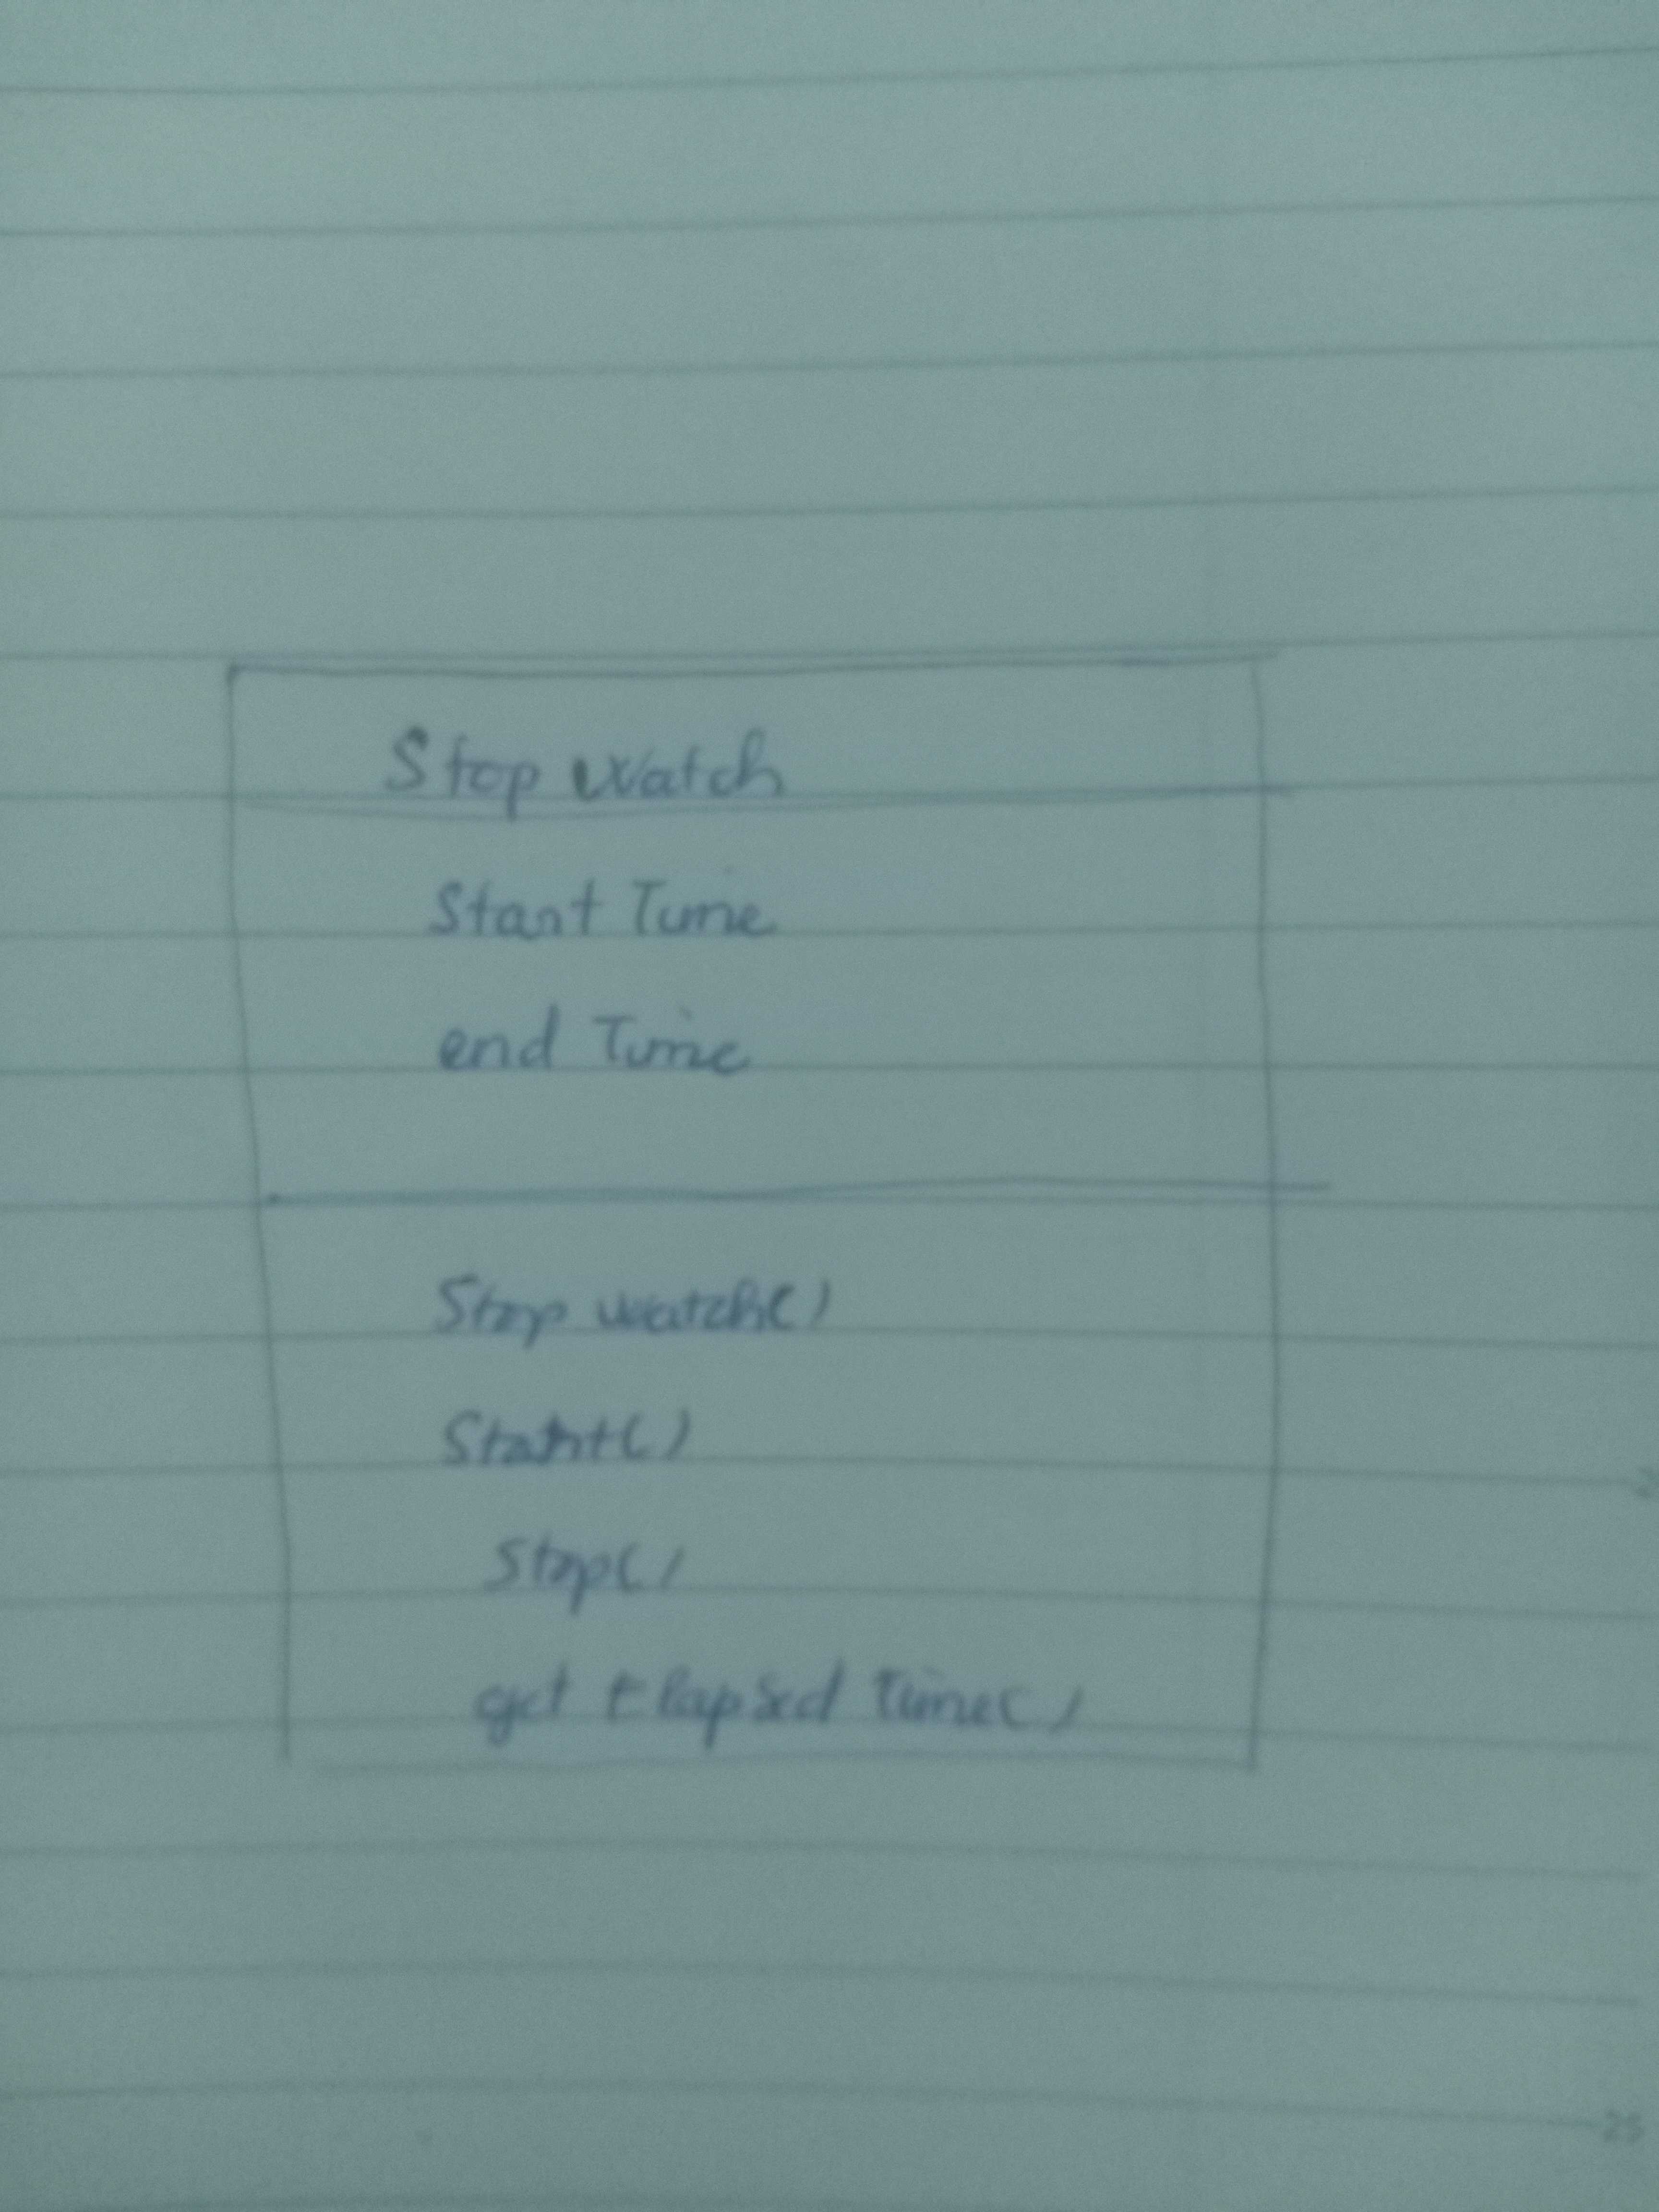 Stop Watch
Start Time
end Time
Stop watch()
Start()
Stop()
get Elapsed Time()
25